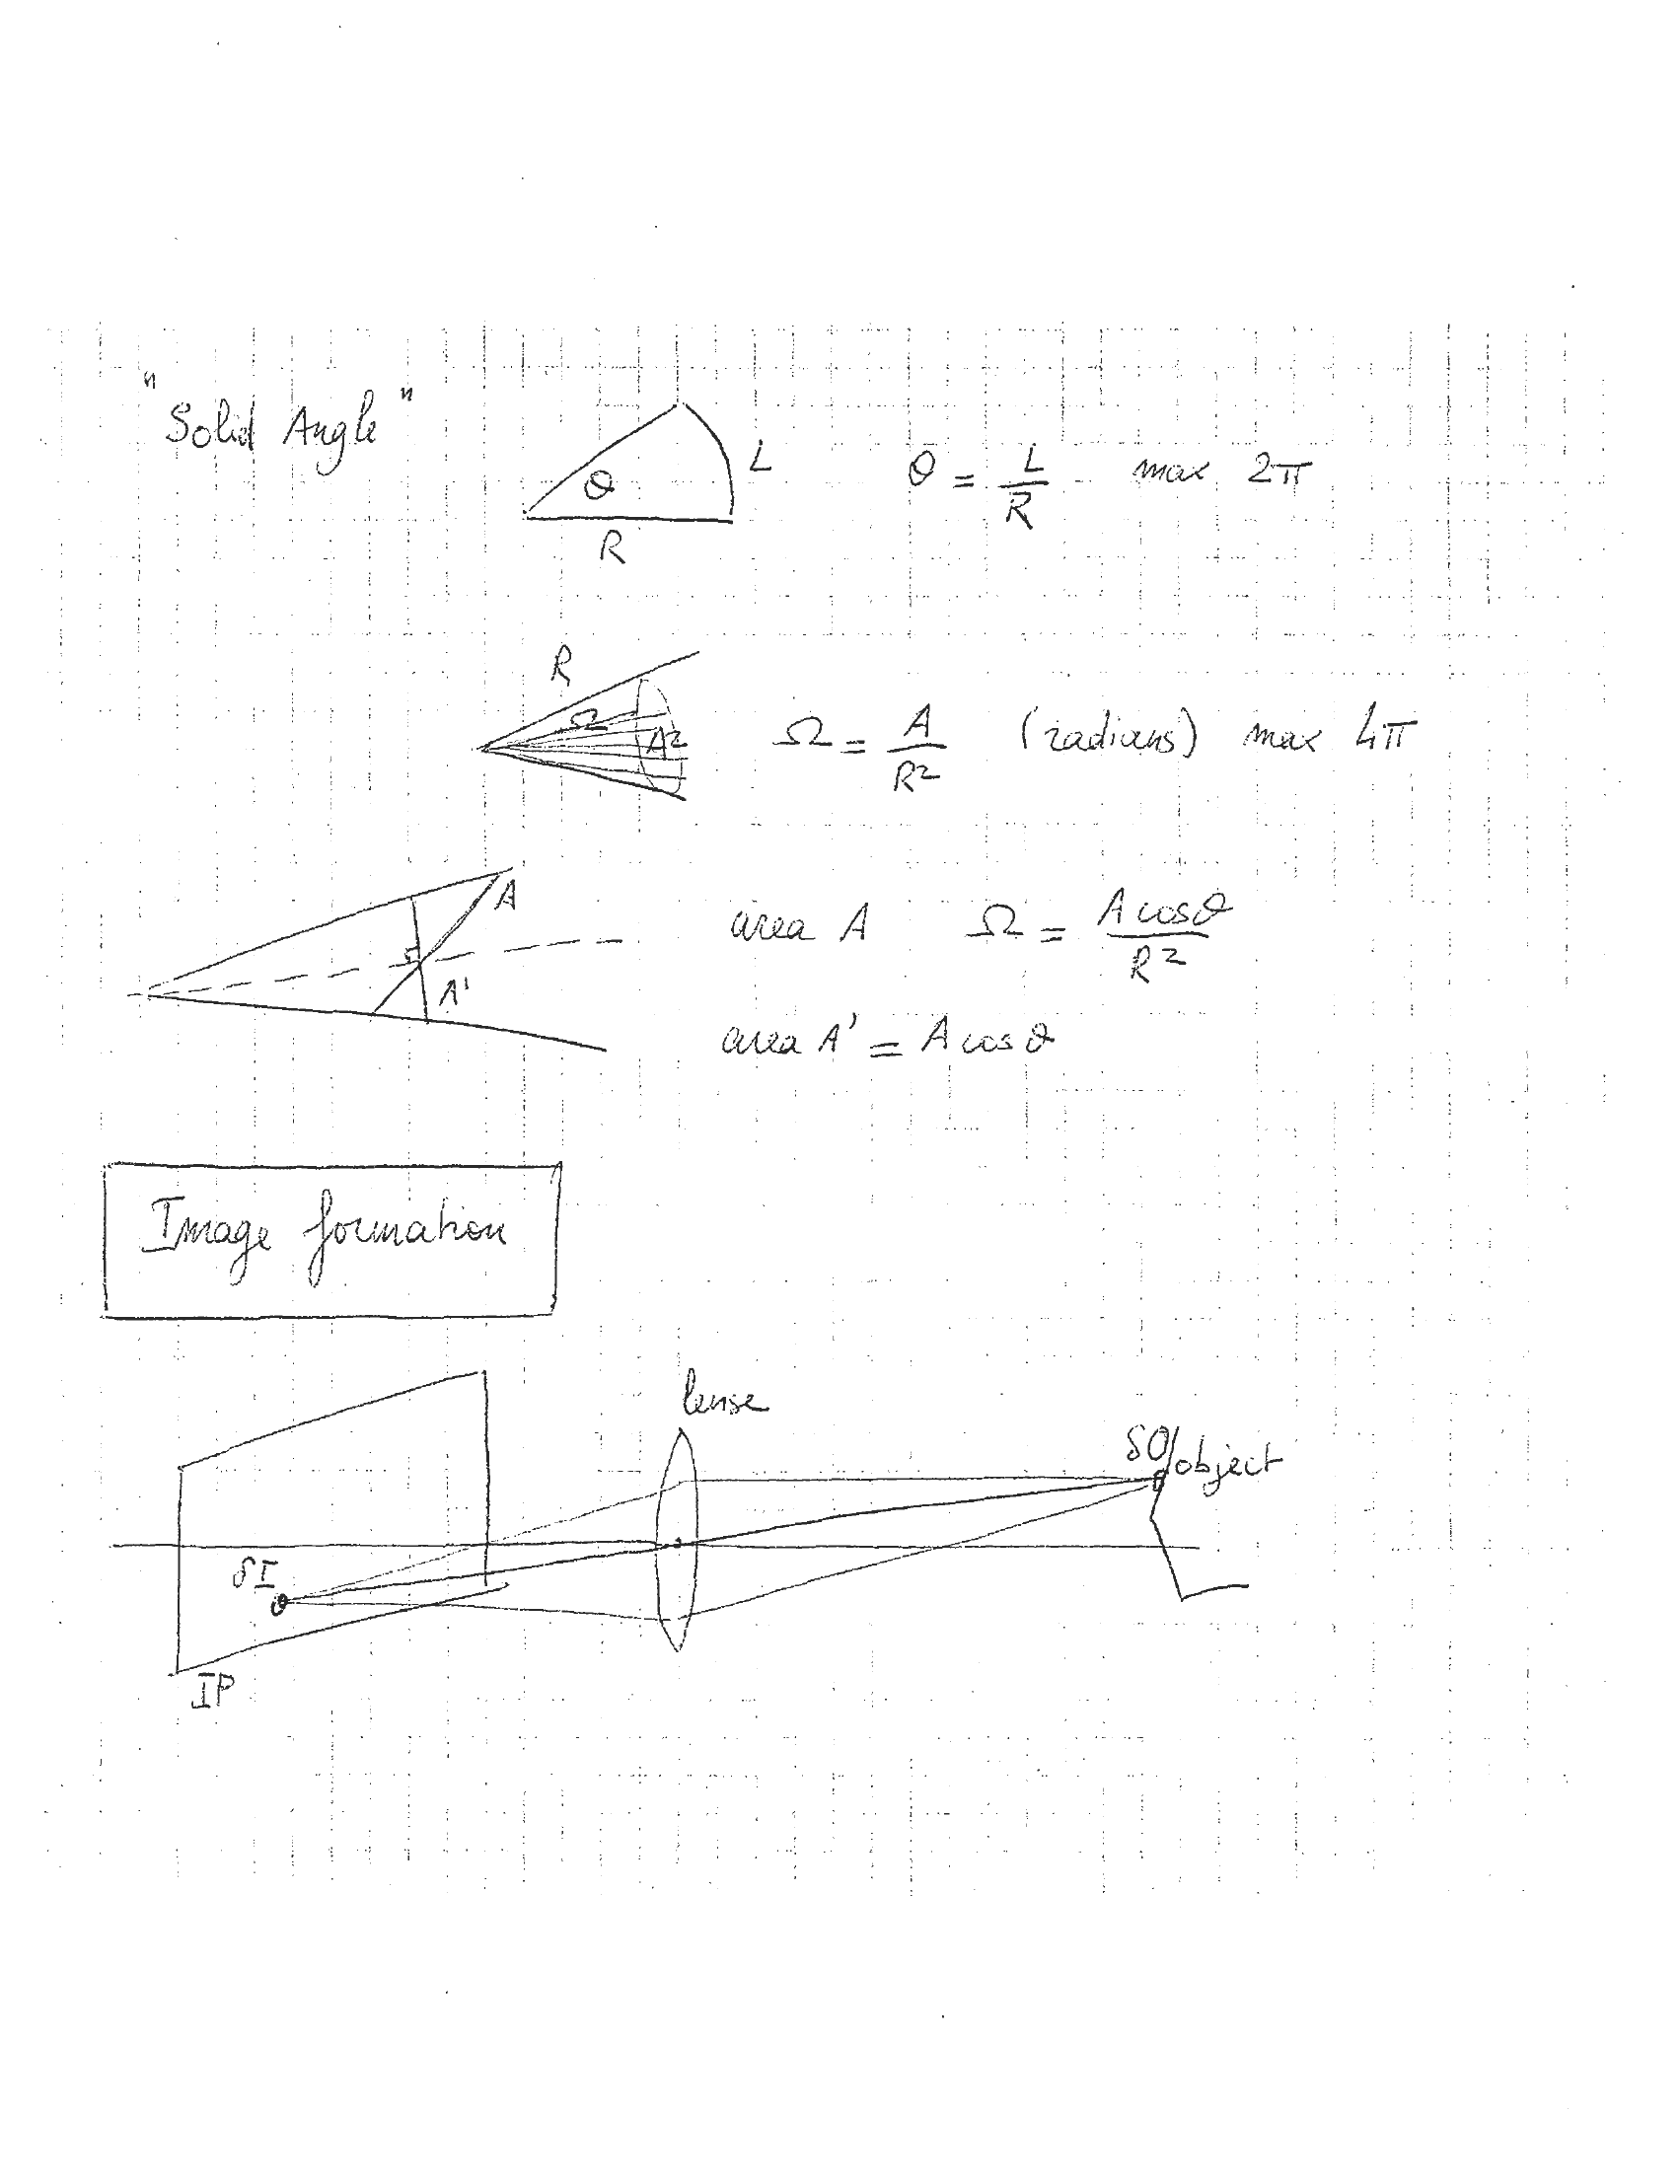 "Solid Angle"
θ L θ = L/R max 2π
R
R
Ω A² Ω = A/R² (radians) max 4π
A area A Ω = A cosθ/R²
A' area A' = A cosθ
Image formation
lense
δO object
δI
IP